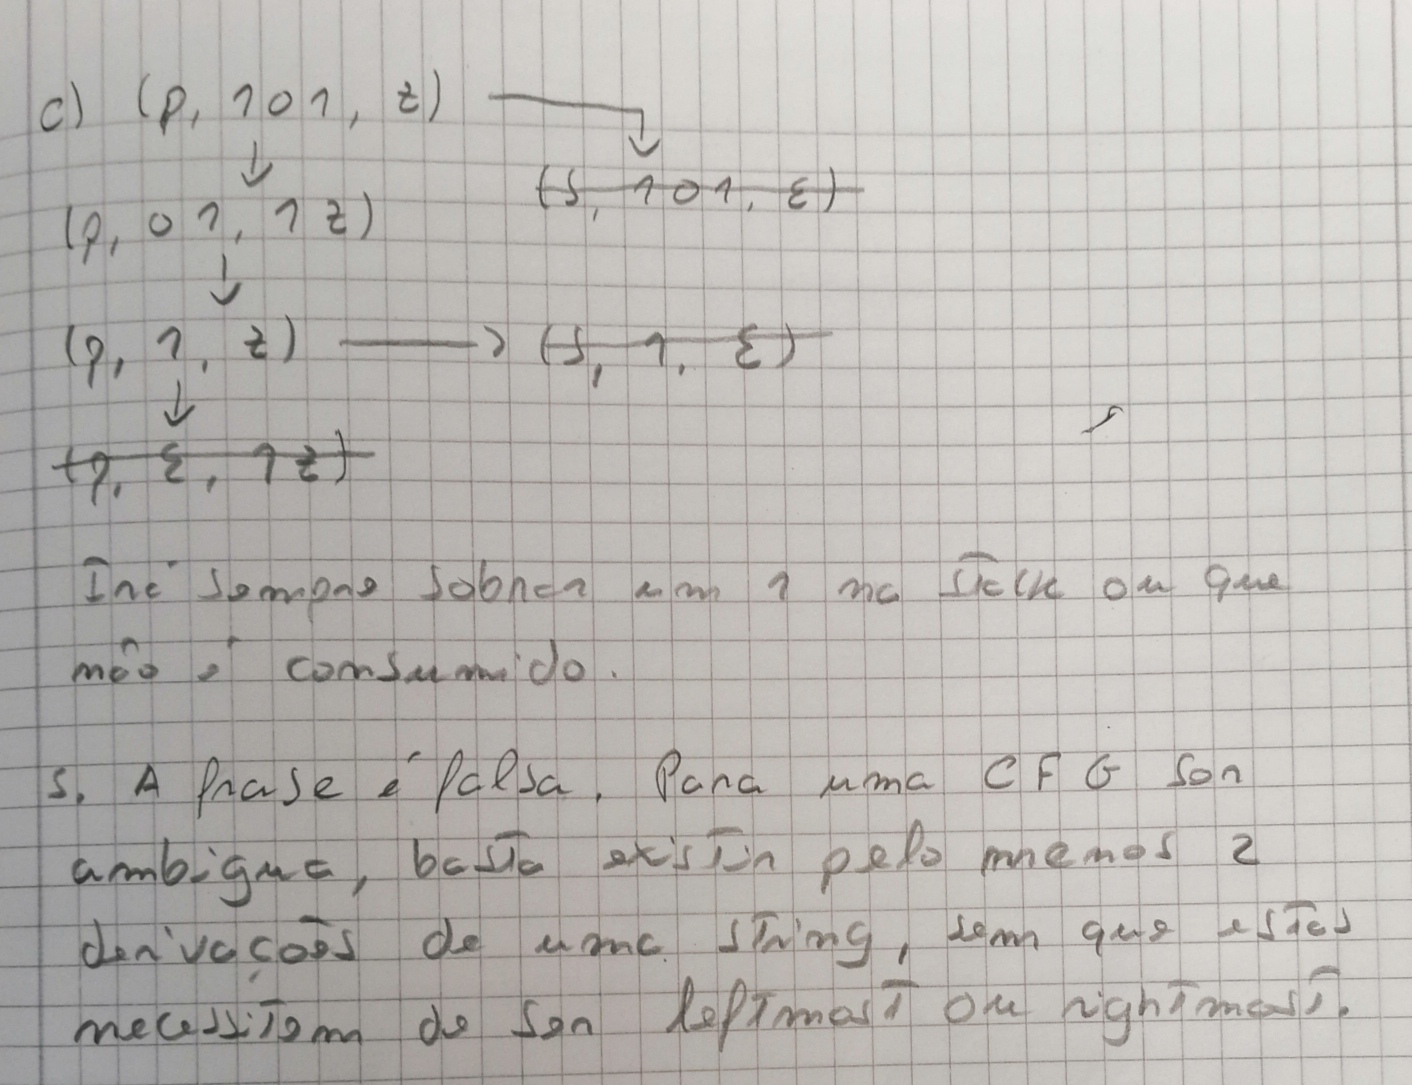 c) (p, 101, z)
(s, 101, ε)
(p, 01, 1z)
(p, 1, z) → (s, 1, ε)
(p, ε, 1z)
Irá sempre sobrar um 1 na stack ou que
não é consumido.
5. A frase é falsa. Para uma CFG ser
ambigua, basta existir pelo mnenos 2
derivações de uma string, sem que estas
necessitem de ser leftmost ou rightmost.